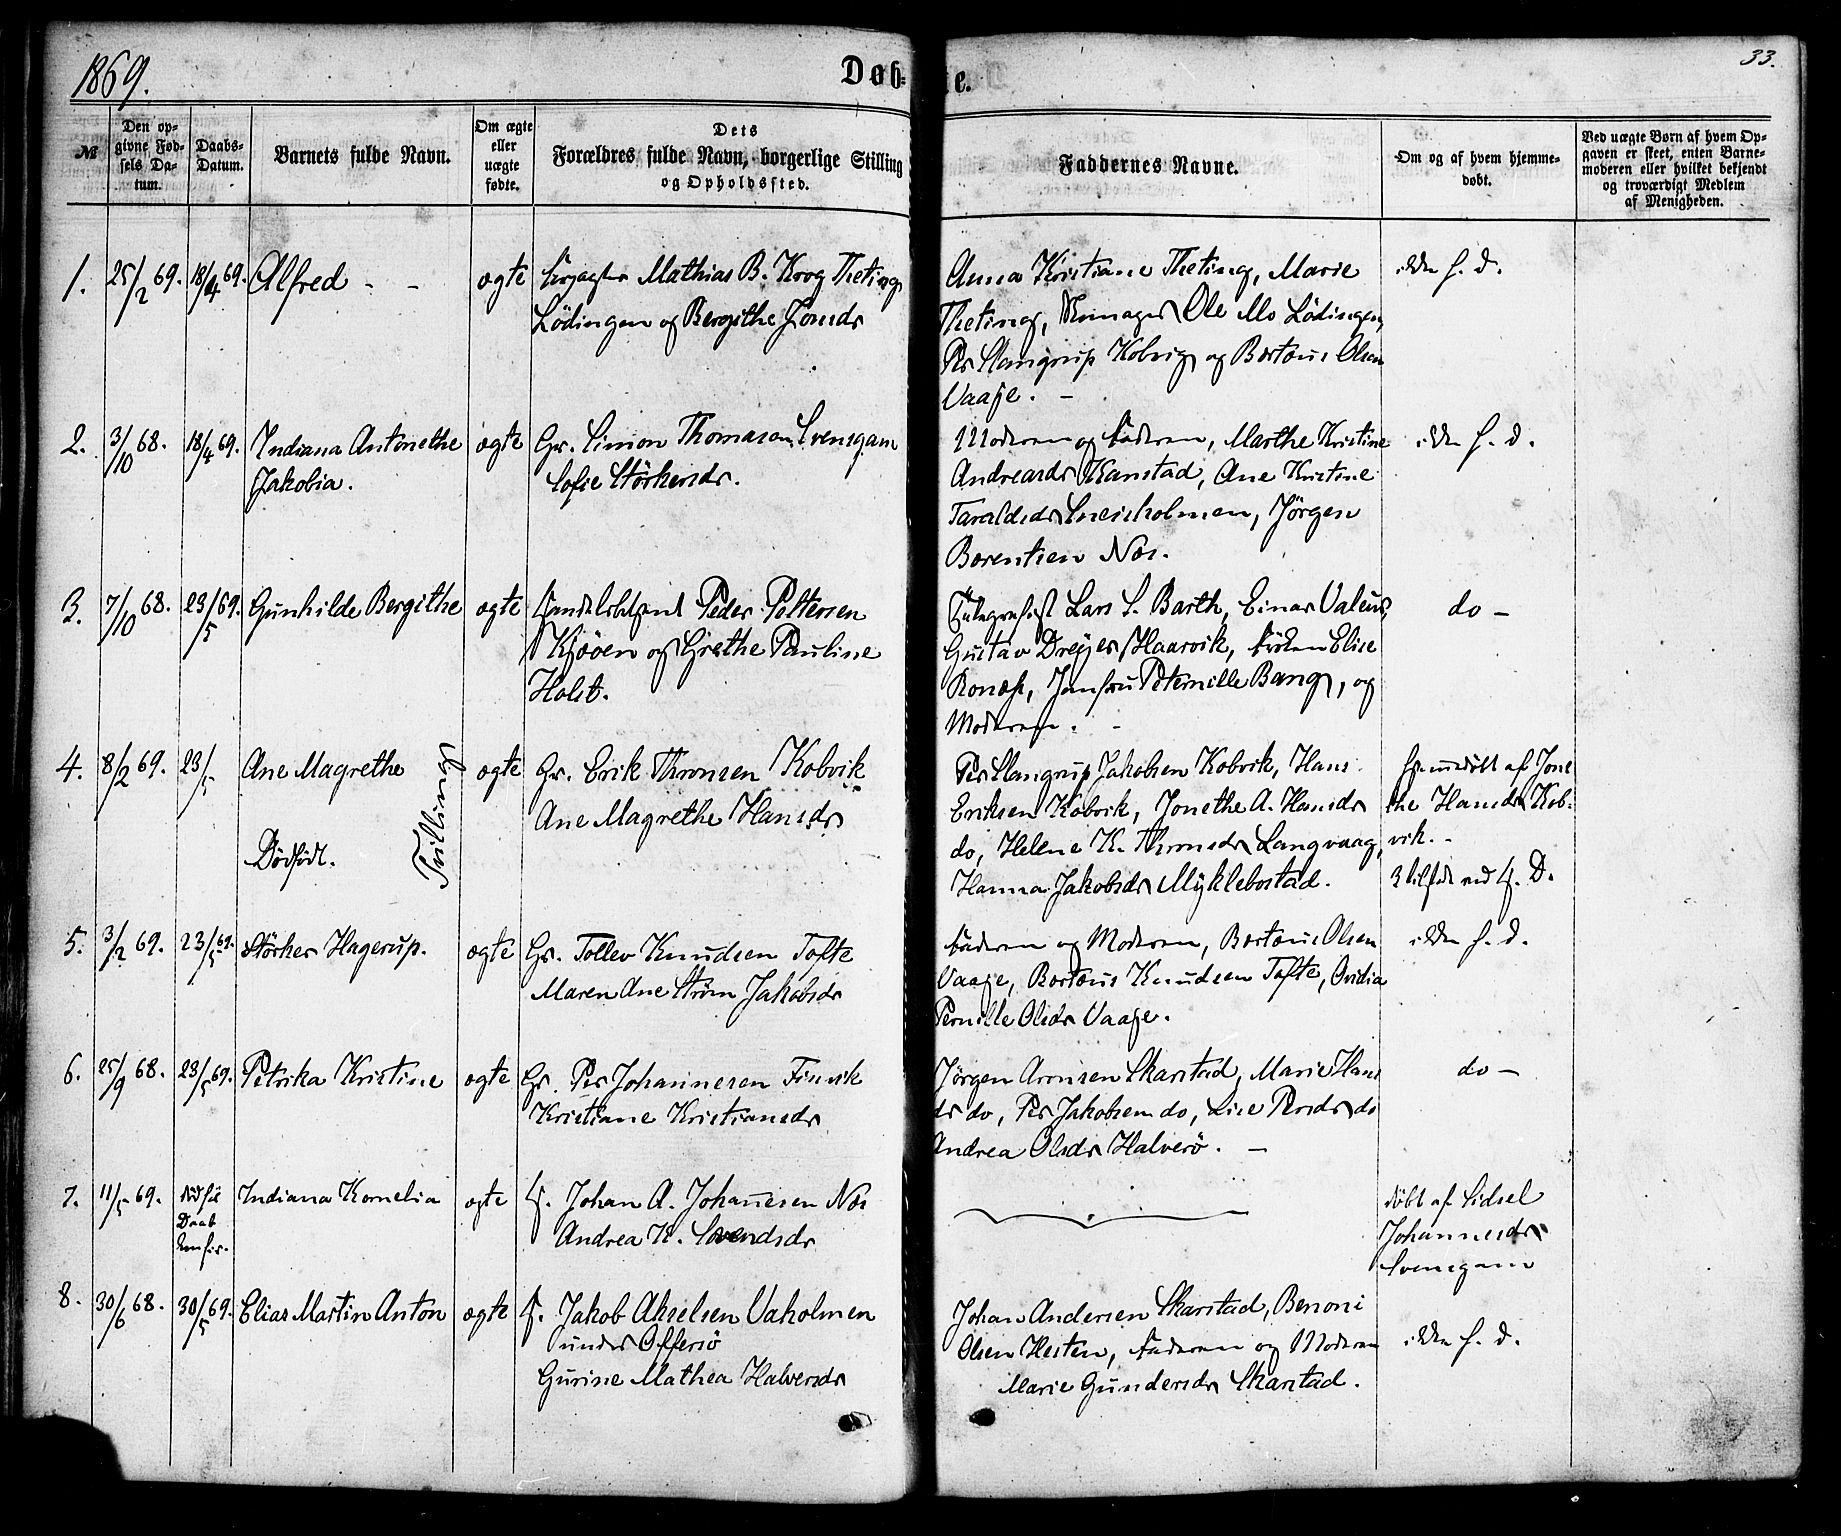 1869.
Døb-
e.
33.
№
Den op-
givne Fød-
sels Da-
tum.
Daabs-
Datum.
Barnets fulde Navn.
Om ægte
eller
uægte
fødte.
Dets
Forældres fulde Navn, borgerlige Stilling
og Opholdssted.
Faddernes Navne.
Om og af hvem hjemme-
døbt.
Ved uægte Børn af hvem Op-
gaven er skeet, enten Barne-
moderen eller hvilket bekjendt
og troværdigt Medlem
af Menigheden.
1. 25/2 69. 18/4 69. Alfred - - ægte Mathias B. Krog Theting
Lödingen og Bergithe Jonsdr
Anna Kristiane Theting, Marie
Theting, Ole Mo Lödingen,
Per Slangrup Kobvig og Bertæus Olsen
Vaaje. -
ikke h. d.
2. 3/10 68. 18/4 69. Indiana Antonethe
Jakobia.
ægte Gr. Simon Thomasen Svensgam
Sofie Störkersdr.
Moderen og Faderen, Marthe Kristine
Andreasdr Kanstad, Ane Kirstine
Taraldsdr Sneisholmen, Jörgen
Borentsen Næs.
ikke h. d.
3. 7/10 68. 23/5 69. Gunhilde Bergithe ægte Handelsbetjent Peder Pettersen
Kjöoen og Grethe Pauline
Holst.
Telegrafist Lars S. Barth, Einar Valeur,
Gustav Dreyer Haarvik, Fröken Elise
Ronæss, Jomfru Peternille Bang, og
Moderen. -
do -
4. 8/2 69. 23/5 Ane Magrethe
Dödfödt.
Tvillinger
ægte Gr. Erik Thronsen Kobvik
Ane Magrethe Hansdr
Per Slangrup Jakobsen Kobvik, Hans
Eriksen Kobvik, Jonethe A. Hansdr
do, Helene K. Thronsdr Langvaag,
Hanna Jakobsdr Myklebostad.
hjemmedöbt af Jone
the Hansdr Kob-
vik. -
5. 3/2 69. 23/5 69. Störker Hagerup. ægte Gr. Tollev Knudsen Tofte
Maren Ane Strøm Jakobsdr
Faderen og Moderen, Bertæus Olsen
Vaaje, Bertæus Knudsen Tofte, Ovidia
Pernille Olsdr Vaaje.
ikke h. d.
6. 25/9 68. 23/5 69. Petrika Kristine ægte Gr. Per Johannesen Finvik
Kristiane Kristiansdr
Jörgen Aronsen Skarstad, Marie Hans
dr do, Per Jakobsen do, Lise Persdr do
Andrea Olsdr Halverö. -
do -
7. 11/5 69. Daab
Indiana Kornelia ægte f. Johan A. Johannesen Næs
Andrea K. Svendsdr
döbt af Sidsel
Johannesdr
Svensgam
8. 30/6 68. 30/5 69. Elias Martin Anton ægte f. Jakob Akselsen Vaholmen
under Offersö
Gurine Mathea Halversdr
Johan Andersen Skarstad, Benoni
Olsen Hesten, Faderen og Moderen
Marie Gundersdr Skarstad.
ikke h. d.